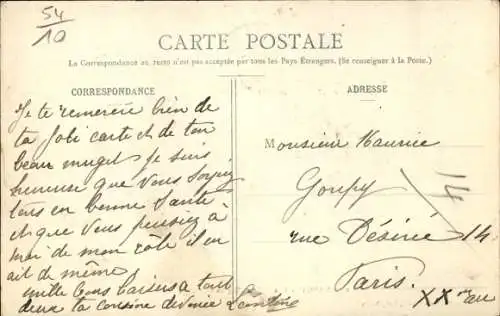 54
10
CARTE POSTALE
La Correspondance au recto n'est pas acceptée par tous les Pays Étrangers. (Se renseigner à la Poste.)
CORRESPONDANCE
Je te remercie bien de
ta joli carte et de ton
beau muguet je suis
heureuse que vous soyez
tous en bonne santé
et que vous pensiez à
moi de mon côté il en
ait de même,
mille bons baisers a tout
deux ta cousine dévouée Léontine
ADRESSE
Monsieur Maurice
Goupy
14
rue Désirée 14
Paris.
XXme